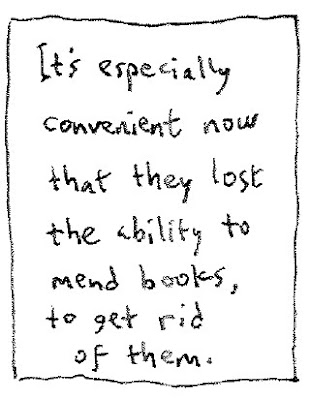 It's especially
convenient now
that they lost
the ability to
mend books,
to get rid
of them.